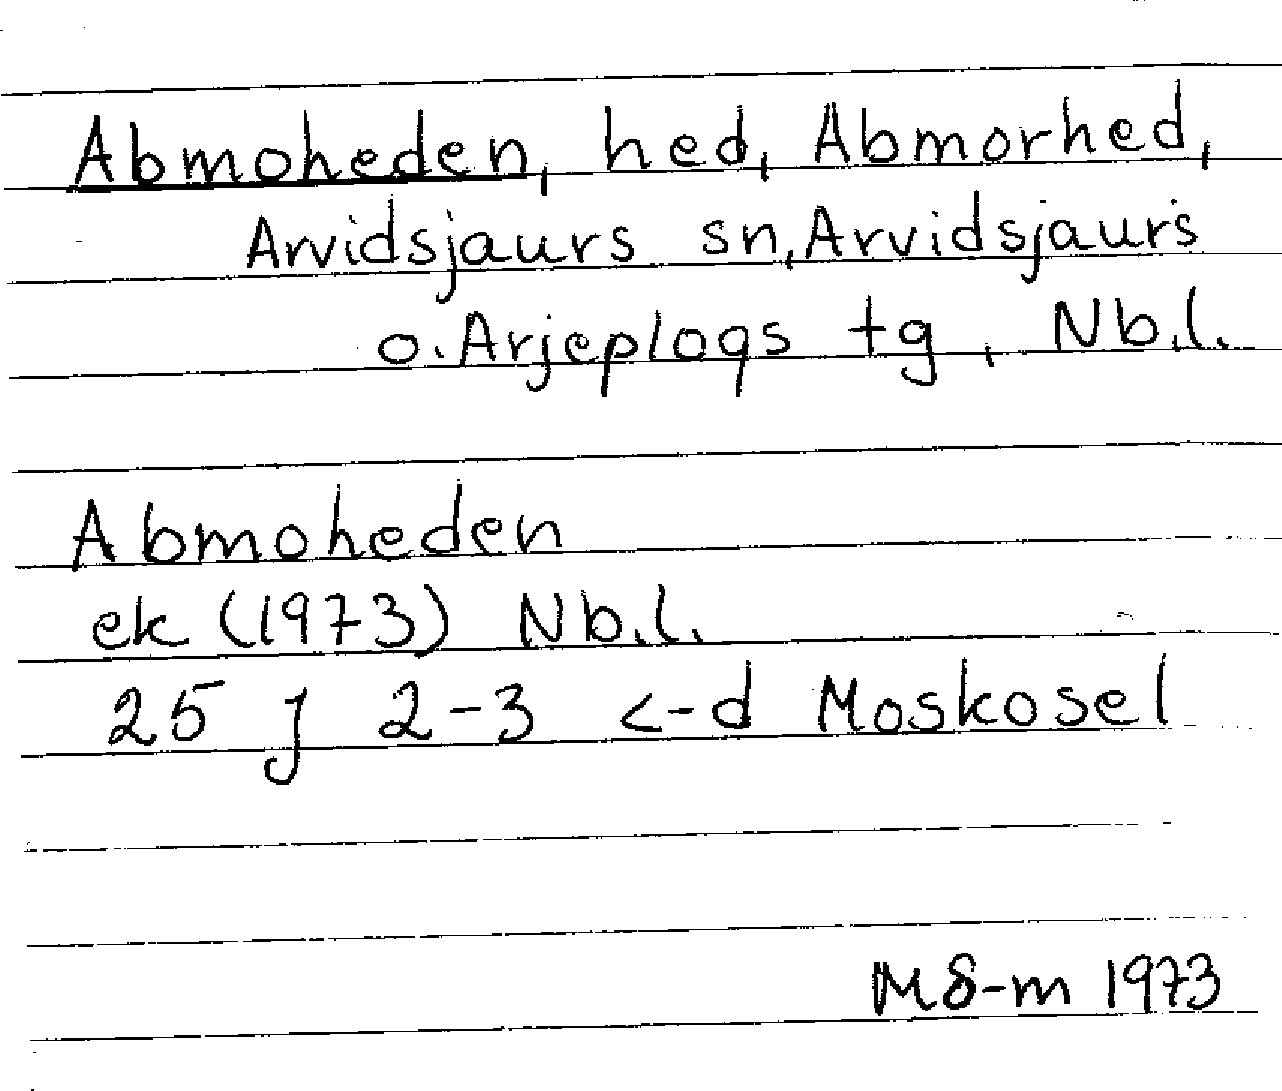 Abmoheden, hed, Abmorhed,
Arvidsjaurs sn, Arvidsjaurs
o. Arjeplogs tg, Nb.l.
Abmoheden
ek (1973) Nb.l.
25 J 2-3 <-d Moskosel
1973